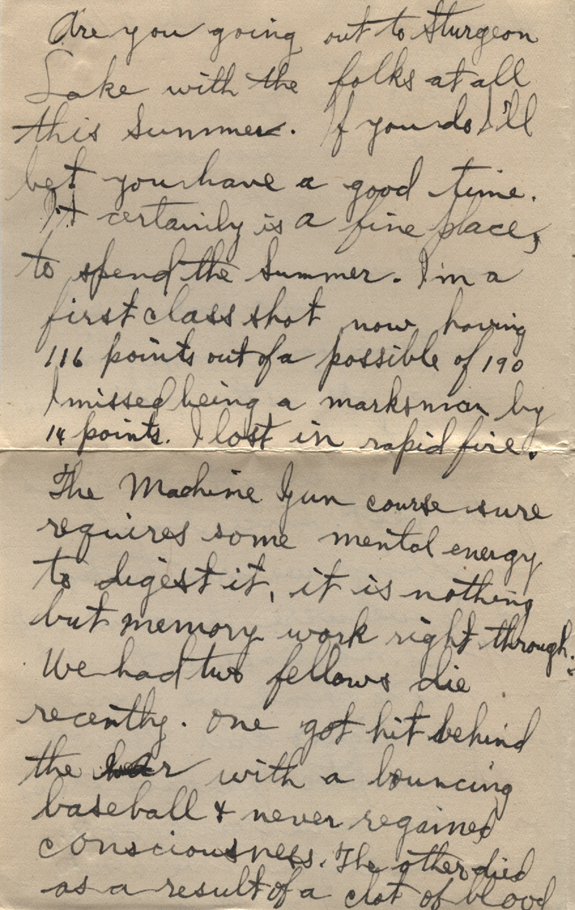 Are you going out to Sturgeon
Lake with the folks at all
this Summer. If you do I'll
bet you have a good time.
It certainly is a fine place,
to spend the Summer. I'm a
first class shot now having
116 points out of a possible of 190
I missed being a marksman by
14 points. I lost in rapid fire.
The Machine Gun course sure
requires some mental energy
to digest it, it is nothing
but memory work right through.
We had two fellows die
recently. One got hit behind
the with a bouncing
baseball & never regained
consciousness. The other died
as a result of a clot of blood